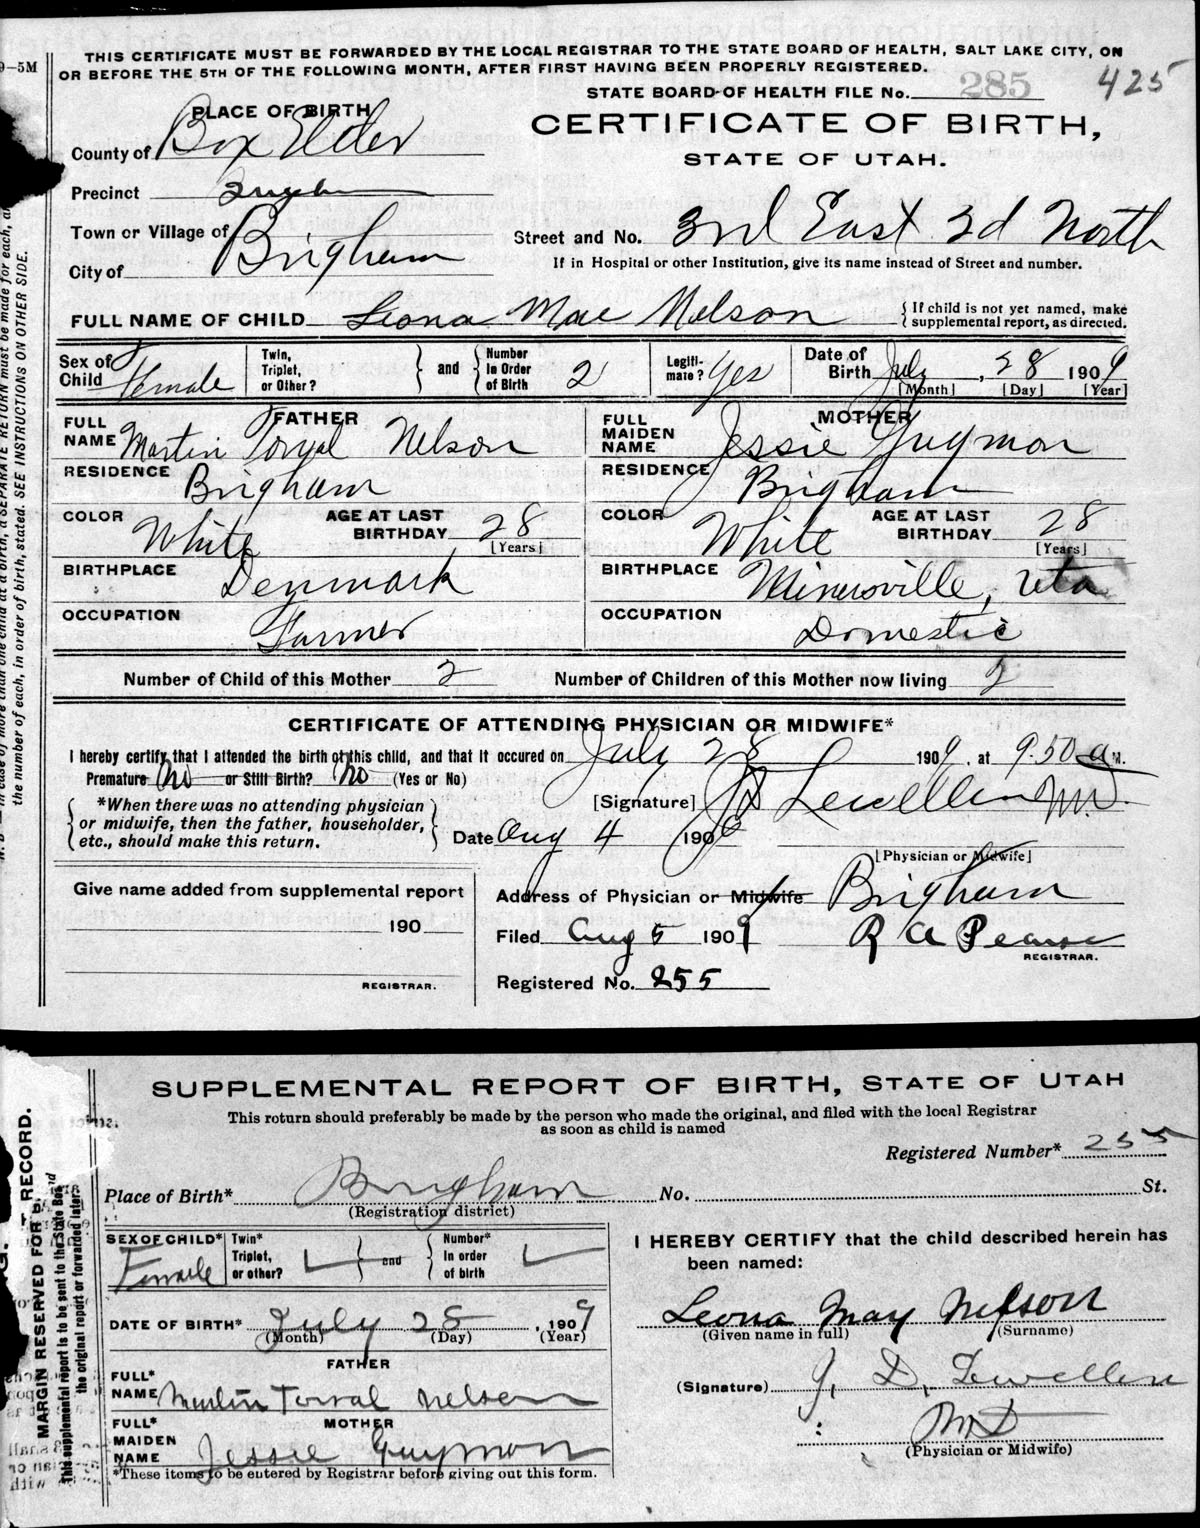 9—5M
THIS CERTIFICATE MUST BE FORWARDED BY THE LOCAL REGISTRAR TO THE STATE BOARD OF HEALTH, SALT LAKE CITY, ON
OR BEFORE THE 5TH OF THE FOLLOWING MONTH, AFTER FIRST HAVING BEEN PROPERLY REGISTERED.
STATE BOARD OF HEALTH FILE No. 285 425
PLACE OF BIRTH
CERTIFICATE OF BIRTH,
STATE OF UTAH.
County of Box Elder
Precinct
Town or Village of
City of Brigham
Street and No. 3rd East 3d North
If in Hospital or other Institution, give its name instead of Street and number.
FULL NAME OF CHILD Leona Mae Nelson {If child is not yet named, make
supplemental report, as directed.
Sex of Child Female Twin, Triplet, or Other? } and { Number In Order of Birth 2 Legiti-mate? Yes Date of Birth July, 28 1909
[Month] [Day] [Year]
FATHER
FULL NAME Martin Torval Nelson
RESIDENCE Brigham
COLOR White AGE AT LAST BIRTHDAY 28
[Years]
BIRTHPLACE Denmark
OCCUPATION Farmer
MOTHER
FULL MAIDEN NAME Jessie Guymon
RESIDENCE Brigham
COLOR White AGE AT LAST BIRTHDAY 28
[Years]
BIRTHPLACE Minersville, Uta
OCCUPATION Domestic
Number of Child of this Mother 2 Number of Children of this Mother now living 2
CERTIFICATE OF ATTENDING PHYSICIAN OR MIDWIFE*
I hereby certify that I attended the birth of this child, and that it occured on July 28 1909, at 9.50 a M.
Premature No or Still Birth? No (Yes or No)
*When there was no attending physician
or midwife, then the father, householder,
etc., should make this return.
[Signature] J D Lewellen M.D.
Date Aug 4 190
[Physician or Midwife]
Give name added from supplemental report
190
REGISTRAR.
Address of Physician or Midwife Brigham
Filed Aug 5 1909 R A Pearse
REGISTRAR.
Registened No. 255
in case of more than one child at a birth, a SEPARATE RETURN must be made for each, a
the number of each, in order of birth, stated. SEE INSTRUCTIONS ON OTHER SIDE.
SUPPLEMENTAL REPORT OF BIRTH, STATE OF UTAH
This return should preferably be made by the person who made the original, and filed with the local Registrar
as soon as child is named
Registered Number* 255
Place of Birth* Brigham No. St.
(Registration district)
SEX OF CHILD* Female Twin* Triplet, or other? } and { Number* In order of birth
DATE OF BIRTH* July 28, 1909
(Month) (Day) (Year)
FATHER
FULL* NAME Martin Torval Nelsen
MOTHER
FULL* MAIDEN NAME Jessie Guymon
*These items to be entered by Registrar before giving out this form.
I HEREBY CERTIFY that the child described herein has
been named:
Leona May Nelson
(Given name in full) (Surname)
(Signature) J. D. Lewellen
M.D
(Physician or Midwife)
MARGIN RESERVED FOR B RECORD.
This supplemental report is to be sent to the State Boa
the original report or forwarded later.